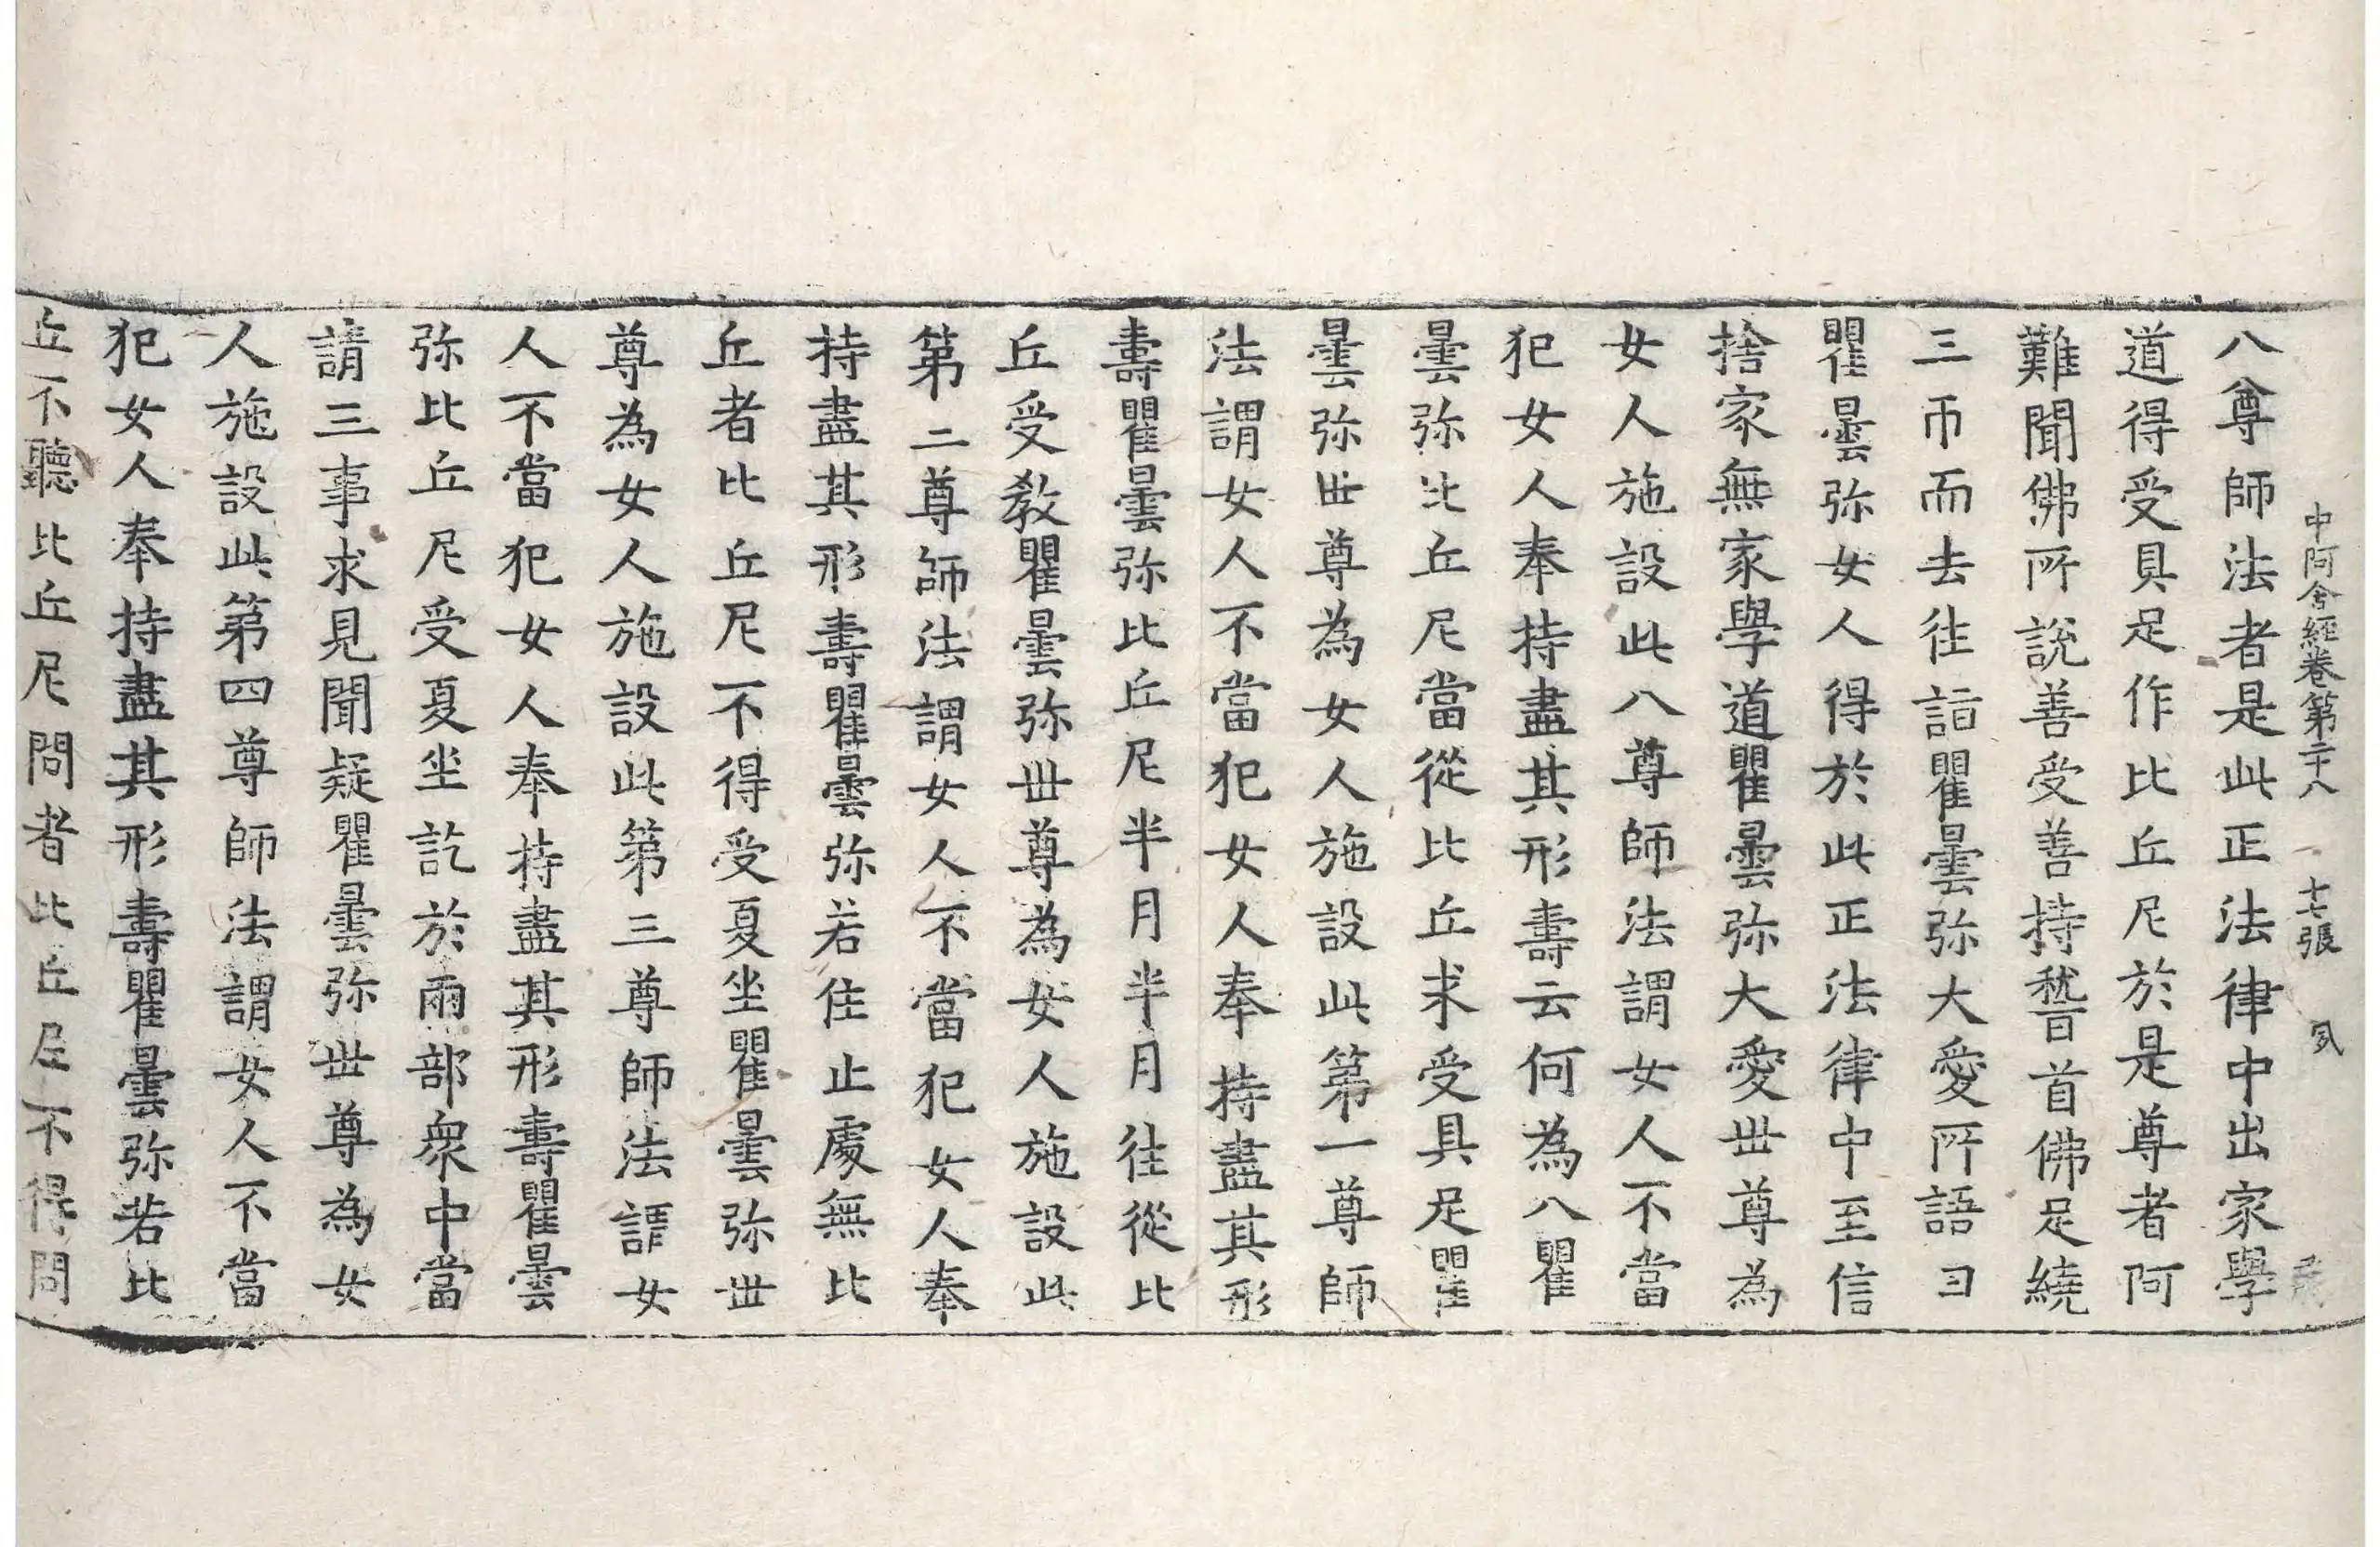 中阿含經卷第二十八 十七張 夙
八尊師法者是此正法律中出家學
道得受具足作比丘尼於是尊者阿
難聞佛所說善受善持稽首佛足繞
三帀而去往詣瞿曇弥大愛所語曰
瞿曇弥女人得於此正法律中至信
捨家無家學道瞿曇弥大愛世尊為
女人施設此八尊師法謂女人不當
犯女人奉持盡其形壽云何為八瞿
曇弥比丘尼當從比丘求受具足瞿
曇弥世尊為女人施設此第一尊師
法謂女人不當犯女人奉持盡其形
壽瞿曇弥比丘尼半月半月往從比
丘受教瞿曇弥世尊為女人施設此
第二尊師法謂女人不當犯女人奉
持盡其形壽瞿曇弥若住止處無比
丘者比丘尼不得受夏坐瞿曇弥世
尊為女人施設此第三尊師法謂女
人不當犯女人奉持盡其形壽瞿曇
弥比丘尼受夏坐訖於兩部衆中當
請三事求見聞疑瞿曇弥世尊為女
人施設此第四尊師法謂女人不當
犯女人奉持盡其形壽瞿曇弥若比
丘不聽比丘尼問者比丘尼不得問